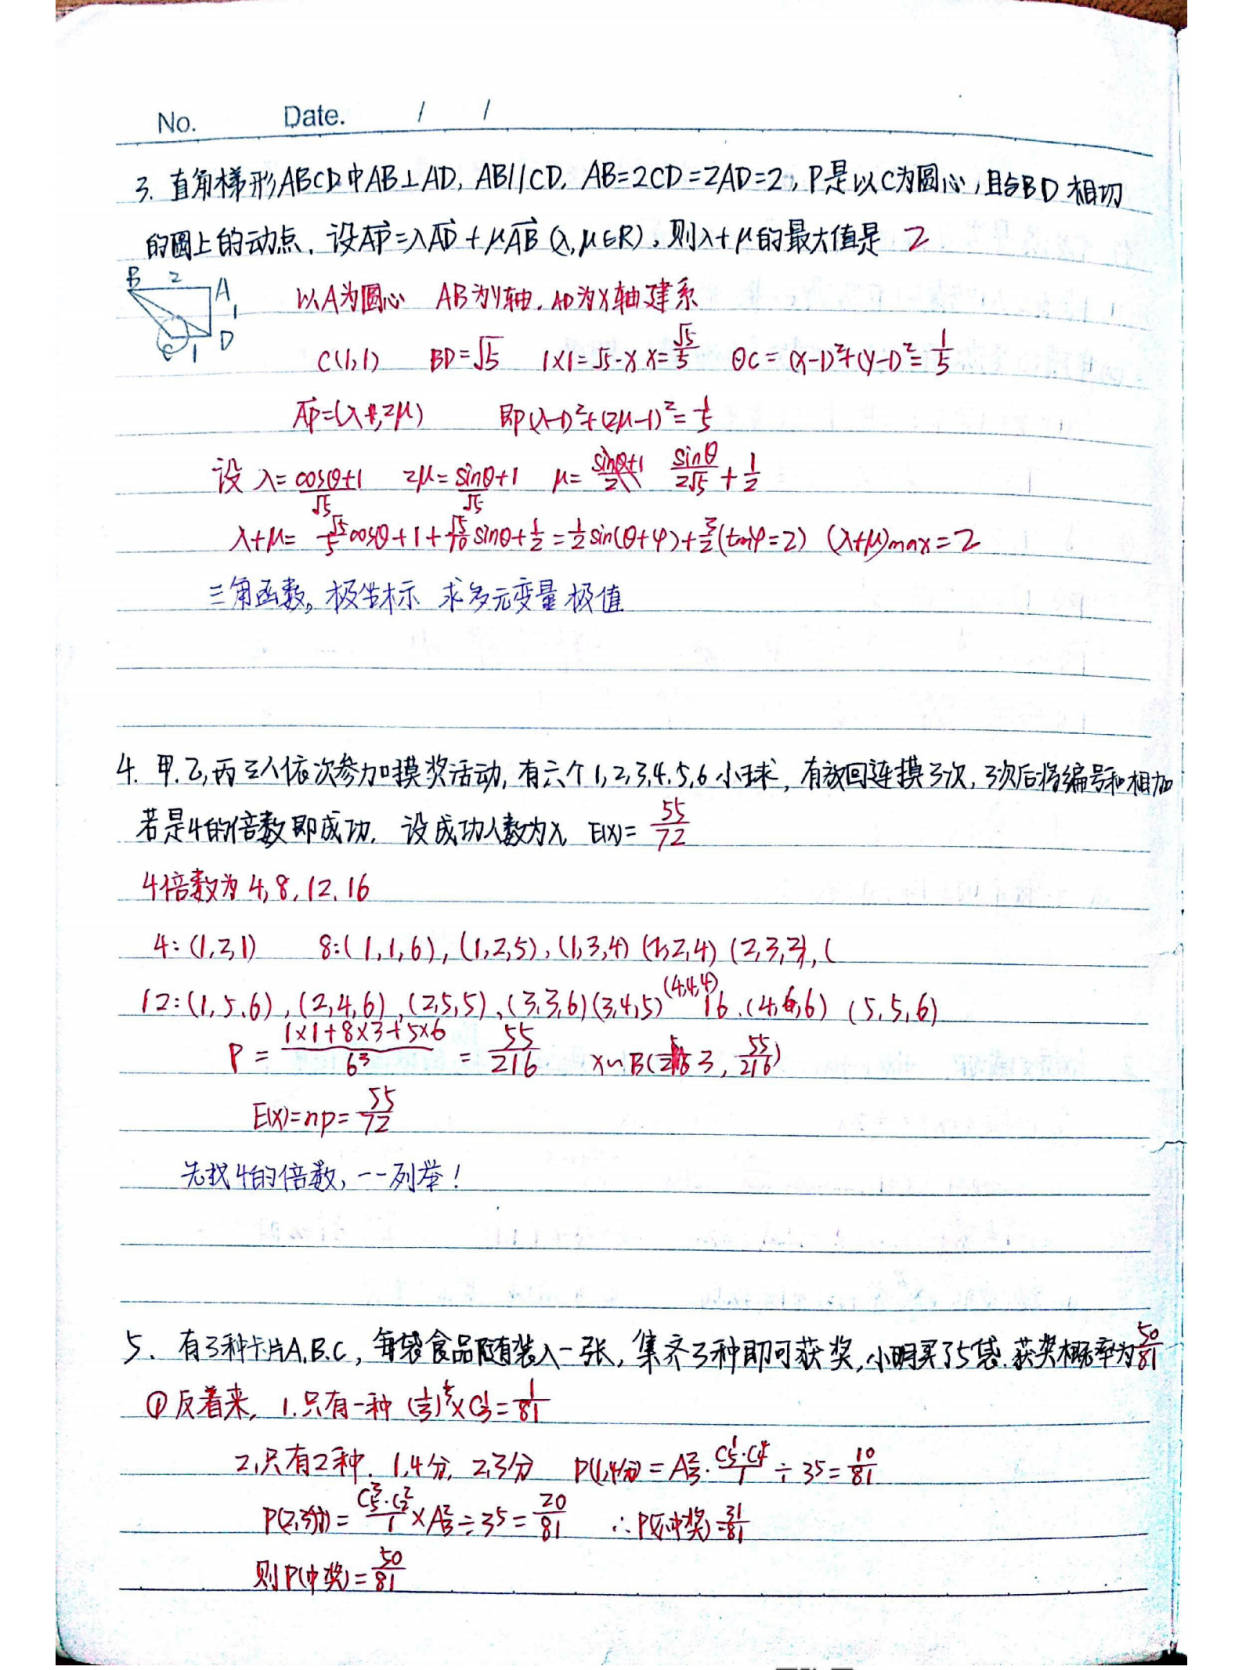 No. Date. / /
3. 直角梯形ABCD中AB⊥AD, AB∥CD, AB=2CD=2AD=2, P是以C为圆心,且与BD相切
的圆上的动点. 设AP=λAD+μAB (λ,μ∈R), 则λ+μ的最大值是 2
B 2 A
1
C 1 D
以A为圆心 AB为Y轴. AD为X轴建系
C(1,1) BD=√5 1×1=√5·x x=√5/5 ΘC=(x-1)²+(y-1)²=1/5
AP=(λ,2μ) 即(λ-1)²+(2μ-1)²=1/5
设 λ=cosθ/√5+1 2μ=sinθ/√5+1 μ= sinθ/2√5+1/2
λ+μ=√5/5cosθ+1+√5/10sinθ+1/2=1/2sin(θ+φ)+3/2(tanφ=2) (λ+μ)max=2
三角函数, 极坐标 求多元变量极值
4. 甲.乙,丙三人依次参加摸奖活动, 有六个1,2,3,4.5,6小球, 有放回连摸3次, 3次后将编号和相加
若是4的倍数即成功. 设成功人数为X, E(X)=55/72
4倍数为4,8,12.16
4: (1,2,1) 8:(1,1,6), (1,2,5), (1,3,4) (2,2,4) (2,3,3), (
12:(1,5,6), (2,4,6), (2,5,5), (3,3,6) (3,4,5) (4,4,4) 16.(4,6,6) (5,5,6)
P=1×1+8×3+5×6/6³=55/216 X~B(3, 55/216)
E(X)=np=55/72
先找4的倍数, 一一列举!
5. 有3种卡片A.B.C, 每袋食品随装入一张, 集齐3种即可获奖, 小明买了5袋.获奖概率为50/81
①反着来, 1.只有一种 (1/3)⁵×C₃¹=1/81
2,只有2种. 1,4分, 2,3分 P(1,4分)=A₃²·C₅¹·C₄⁴/1÷3⁵=10/81
P(2,3分)=C₅³·C₂²/1×A₃²÷3⁵=20/81 ∴P(不中奖)=31/81
则P(中奖)=50/81